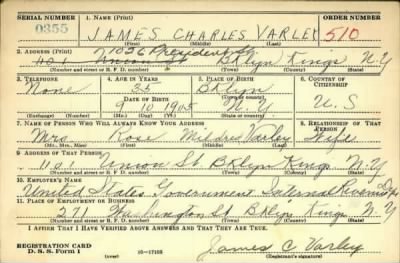 SERIAL NUMBER 1. NAME (Print) ORDER NUMBER
0355 JAMES CHARLES VARLEY 510
(First) (Middle) (Last)
2. ADDRESS (Print) 1036 President St
1101 Union St Bklyn Kings N.Y
(Number and street or R. F. D. number) (Town) (County) (State)
3. TELEPHONE 4. AGE IN YEARS 5. PLACE OF BIRTH 6. COUNTRY OF CITIZENSHIP
None 35 Bklyn
DATE OF BIRTH
9 10 1905 N.Y U.S
(Exchange) (Number) (Mo.) (Day) (Yr.) (State or country)
7. NAME OF PERSON WHO WILL ALWAYS KNOW YOUR ADDRESS 8. RELATIONSHIP OF THAT PERSON
Mrs Rose Mildred Varley Wife
(Mr., Mrs., Miss) (First) (Middle) (Last)
9. ADDRESS OF THAT PERSON
1101 Union St Bklyn Kings N.Y
(Number and street or R. F. D. number) (Town) (County) (State)
10. EMPLOYER'S NAME
United States Government Internal Revenue
11. PLACE OF EMPLOYMENT OR BUSINESS
271 Washington St Bklyn Kings N.Y
(Number and street or R. F. D. number) (Town) (County) (State)
I AFFIRM THAT I HAVE VERIFIED ABOVE ANSWERS AND THAT THEY ARE TRUE.
REGISTRATION CARD
D. S. S. Form 1 (over) 16-17105 James C Varley
(Registrant's signature)